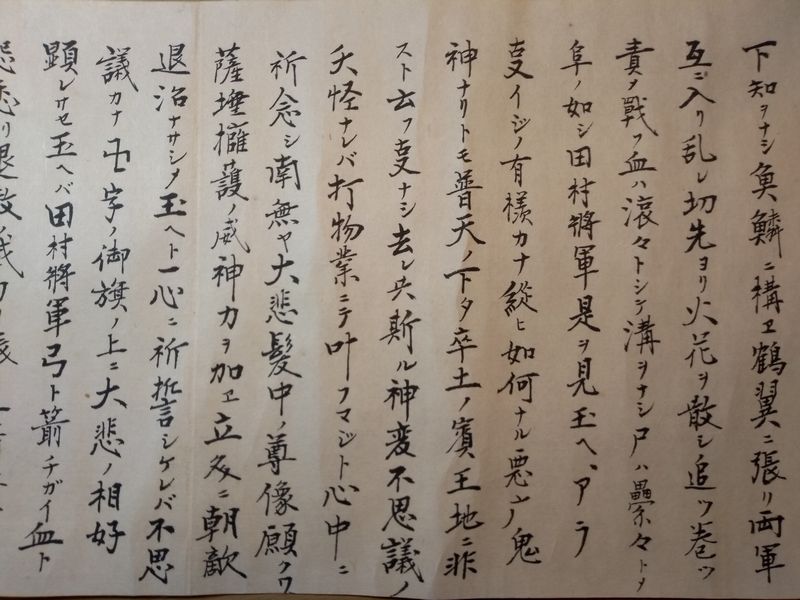 下知ヲナシ魚鱗ニ構ヱ鶴翼ニ張リ両軍
互ニ入リ乱レ切先ヨリ火花ヲ散シ追ツ巻ツ
責メ戰フ血ハ滾々トシテ溝ヲナシ尸ハ壘々トメ
阜ノ如シ田村將軍是ヲ見玉ヘ、アラ
㕝イジノ有様カナ縱ヒ如何ナル悪广鬼
神ナリトモ普天ノ下タ卒土ノ賓王地ニ非
スト云フ㕝ナシ去レ共斯ル神変不思議ノ
夭怪ナレバ打物業ニテ叶フマジト心中ニ
祈念シ南無ヤ大悲髪中ノ尊像願クワ
薩埵擁護ノ威神力ヲ加ヱ立処ニ朝敵
退治ナサシメ玉ヘト一心ニ祈誓シケレバ不思
議カナ卍字ノ御旗ノ上ニ大悲ノ相好
顕レサセ玉ヘバ田村將軍弓ト箭チガイ血ト